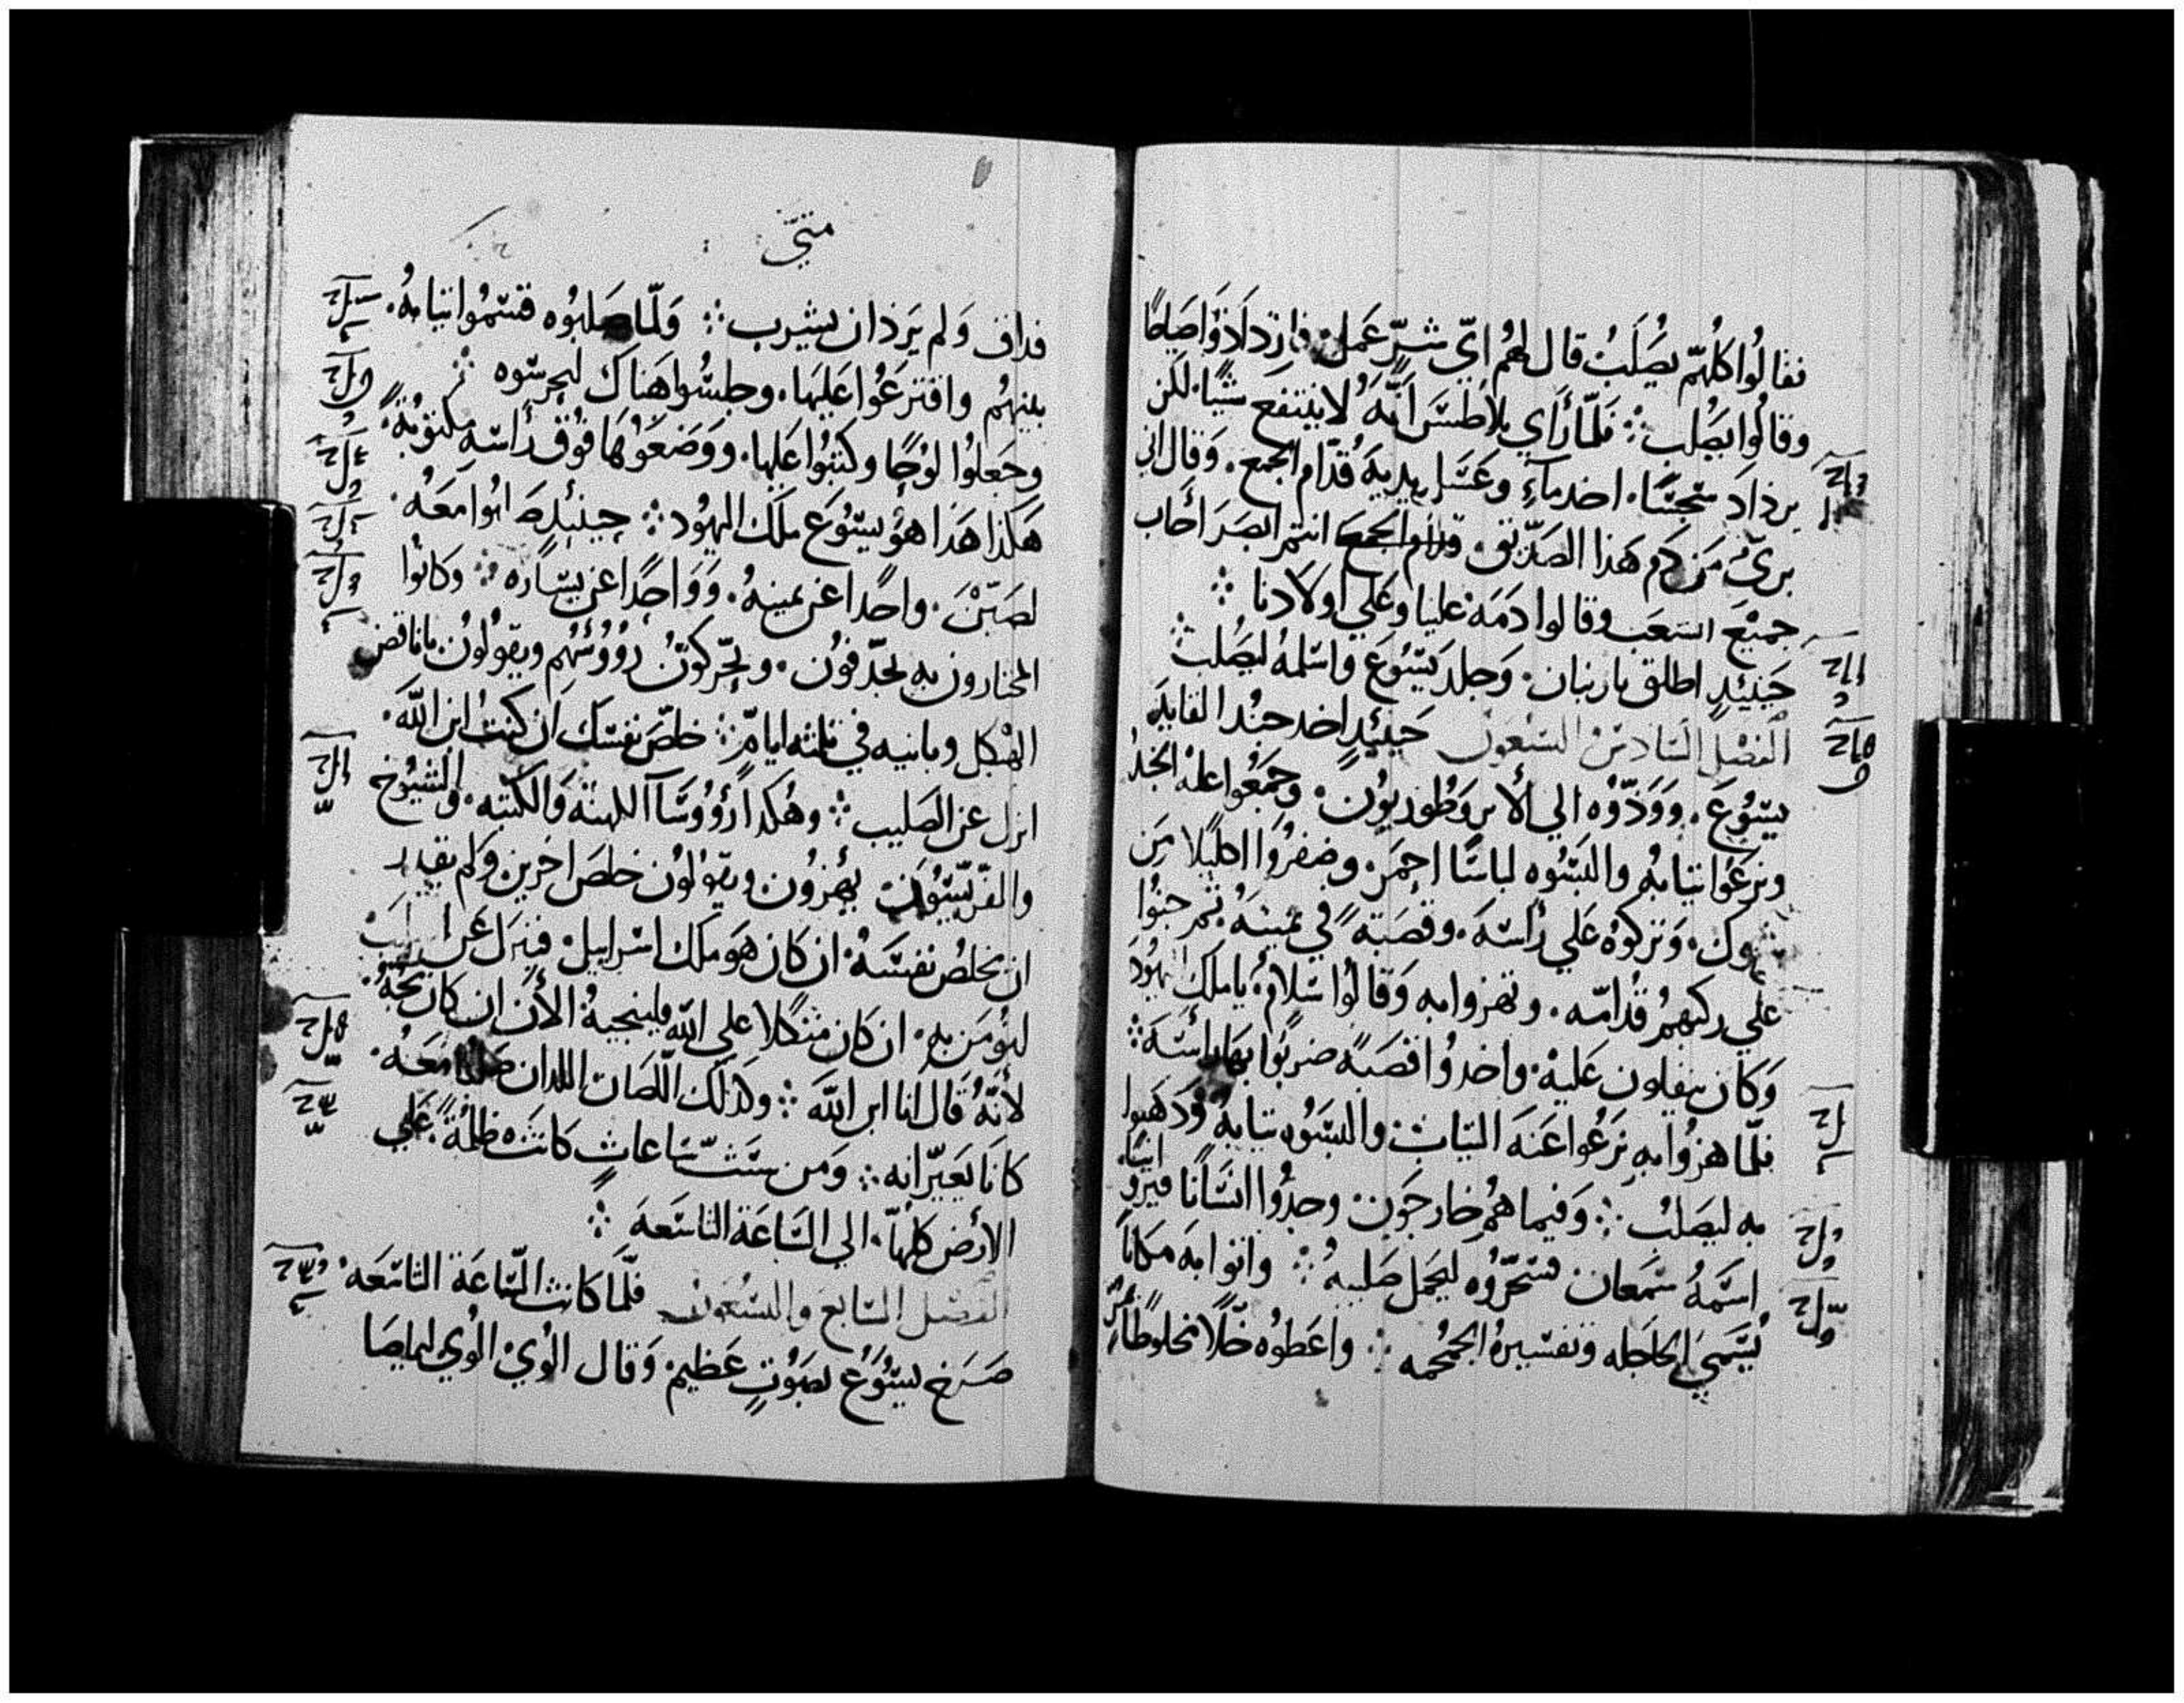 فقالوا كلهم يصلب قال لهم اي شر عمل فازدادوا صياحا
وقالوا يصلب ܀ فلما رأي بلاطس أنه لا ينتفع شيا لكن
يزداد سجسا اخد ماء وغسل يديه قدام الجمع وقال اني
بري من دم هذا الصديق انتم ابصر اجاب
جميع الشعب وقالوا دمه علينا وعلي اولادنا ܀
حينئد اطلق باربان وجلد يسوع واسلمه ليصلب
الفصل السادس السبعون حينئد اخد جند القايد
يسوع وودوه الي الابروطوريون وجمعوا عليه الجند
ونزعوا تيابه والبسوه لباسا احمر وضفروا اكليلا من
شوك وتركوه علي رأسه وقصبة في يمينه ثم جتوا
علي ركبهم قدامه وتهزوا به وقالوا سلام يا ملك اليهود
وكان يتفلون عليه واخدوا قصبة ضربوا بها راسه ܀
فلما هزوا به نزعوا عنه التياب والبسوه تيابه ودهبوا
به ليصلب ܀ وفيما هم خارجون وجدوا انسانا قيرو انيا
اسمه سمعان فسخروه ليحمل صليبه ܀ واتوا به مكانا
يسمي الجاجله وتفسيره الجمجمه ܀ واعطوه خلا مخلوطا بمر
متي
فداق ولم يرد ان يشرب ܀ ولما صلبوه قسموا تيابه
بينهم واقترعوا عليها وجلسوا هناك ليحرسوه ܀
وجعلوا لوحا وكتبوا عليها ووضعوها فوق رأسه مكتوبة
هكذا هذا هو يسوع ملك اليهود ܀ حينئد صلبوا معه
لصين واحدا عن يمينه وواحدا عن يساره ܀ وكانوا
المجتازون به يجدفون ويحركون رؤوسهم ويقولون يا ناقض
الهيكل وبانيه في تلته ايام ܀ خلص نفسك ان كنت ابن الله
انزل عن الصليب ܀ وهكدا رؤوسآ الكهنة والكتبه والشيوخ
والفريسيون يهزون ويقولون خلص اخرين ولم يقدر
ان يخلص نفسه ان كان هو ملك اسراييل فينزل عن الصليب
ليؤمن به ان كان متكلا علي الله فلينجيه الأن ان كان يحبه
لأنه قال انا ابن الله ܀ وكذلك اللصان اللدان صلبا معه
كانا يعيرانه ܀ ومن ست ساعات كانت ظلمة علي
الارض كلها الي الساعة التاسعه ܀
الفصل السابع والسبعون فلما كانت الساعة التاسعه
صرخ يسوع بصوت عظيم وقال الوي الوي لماصا